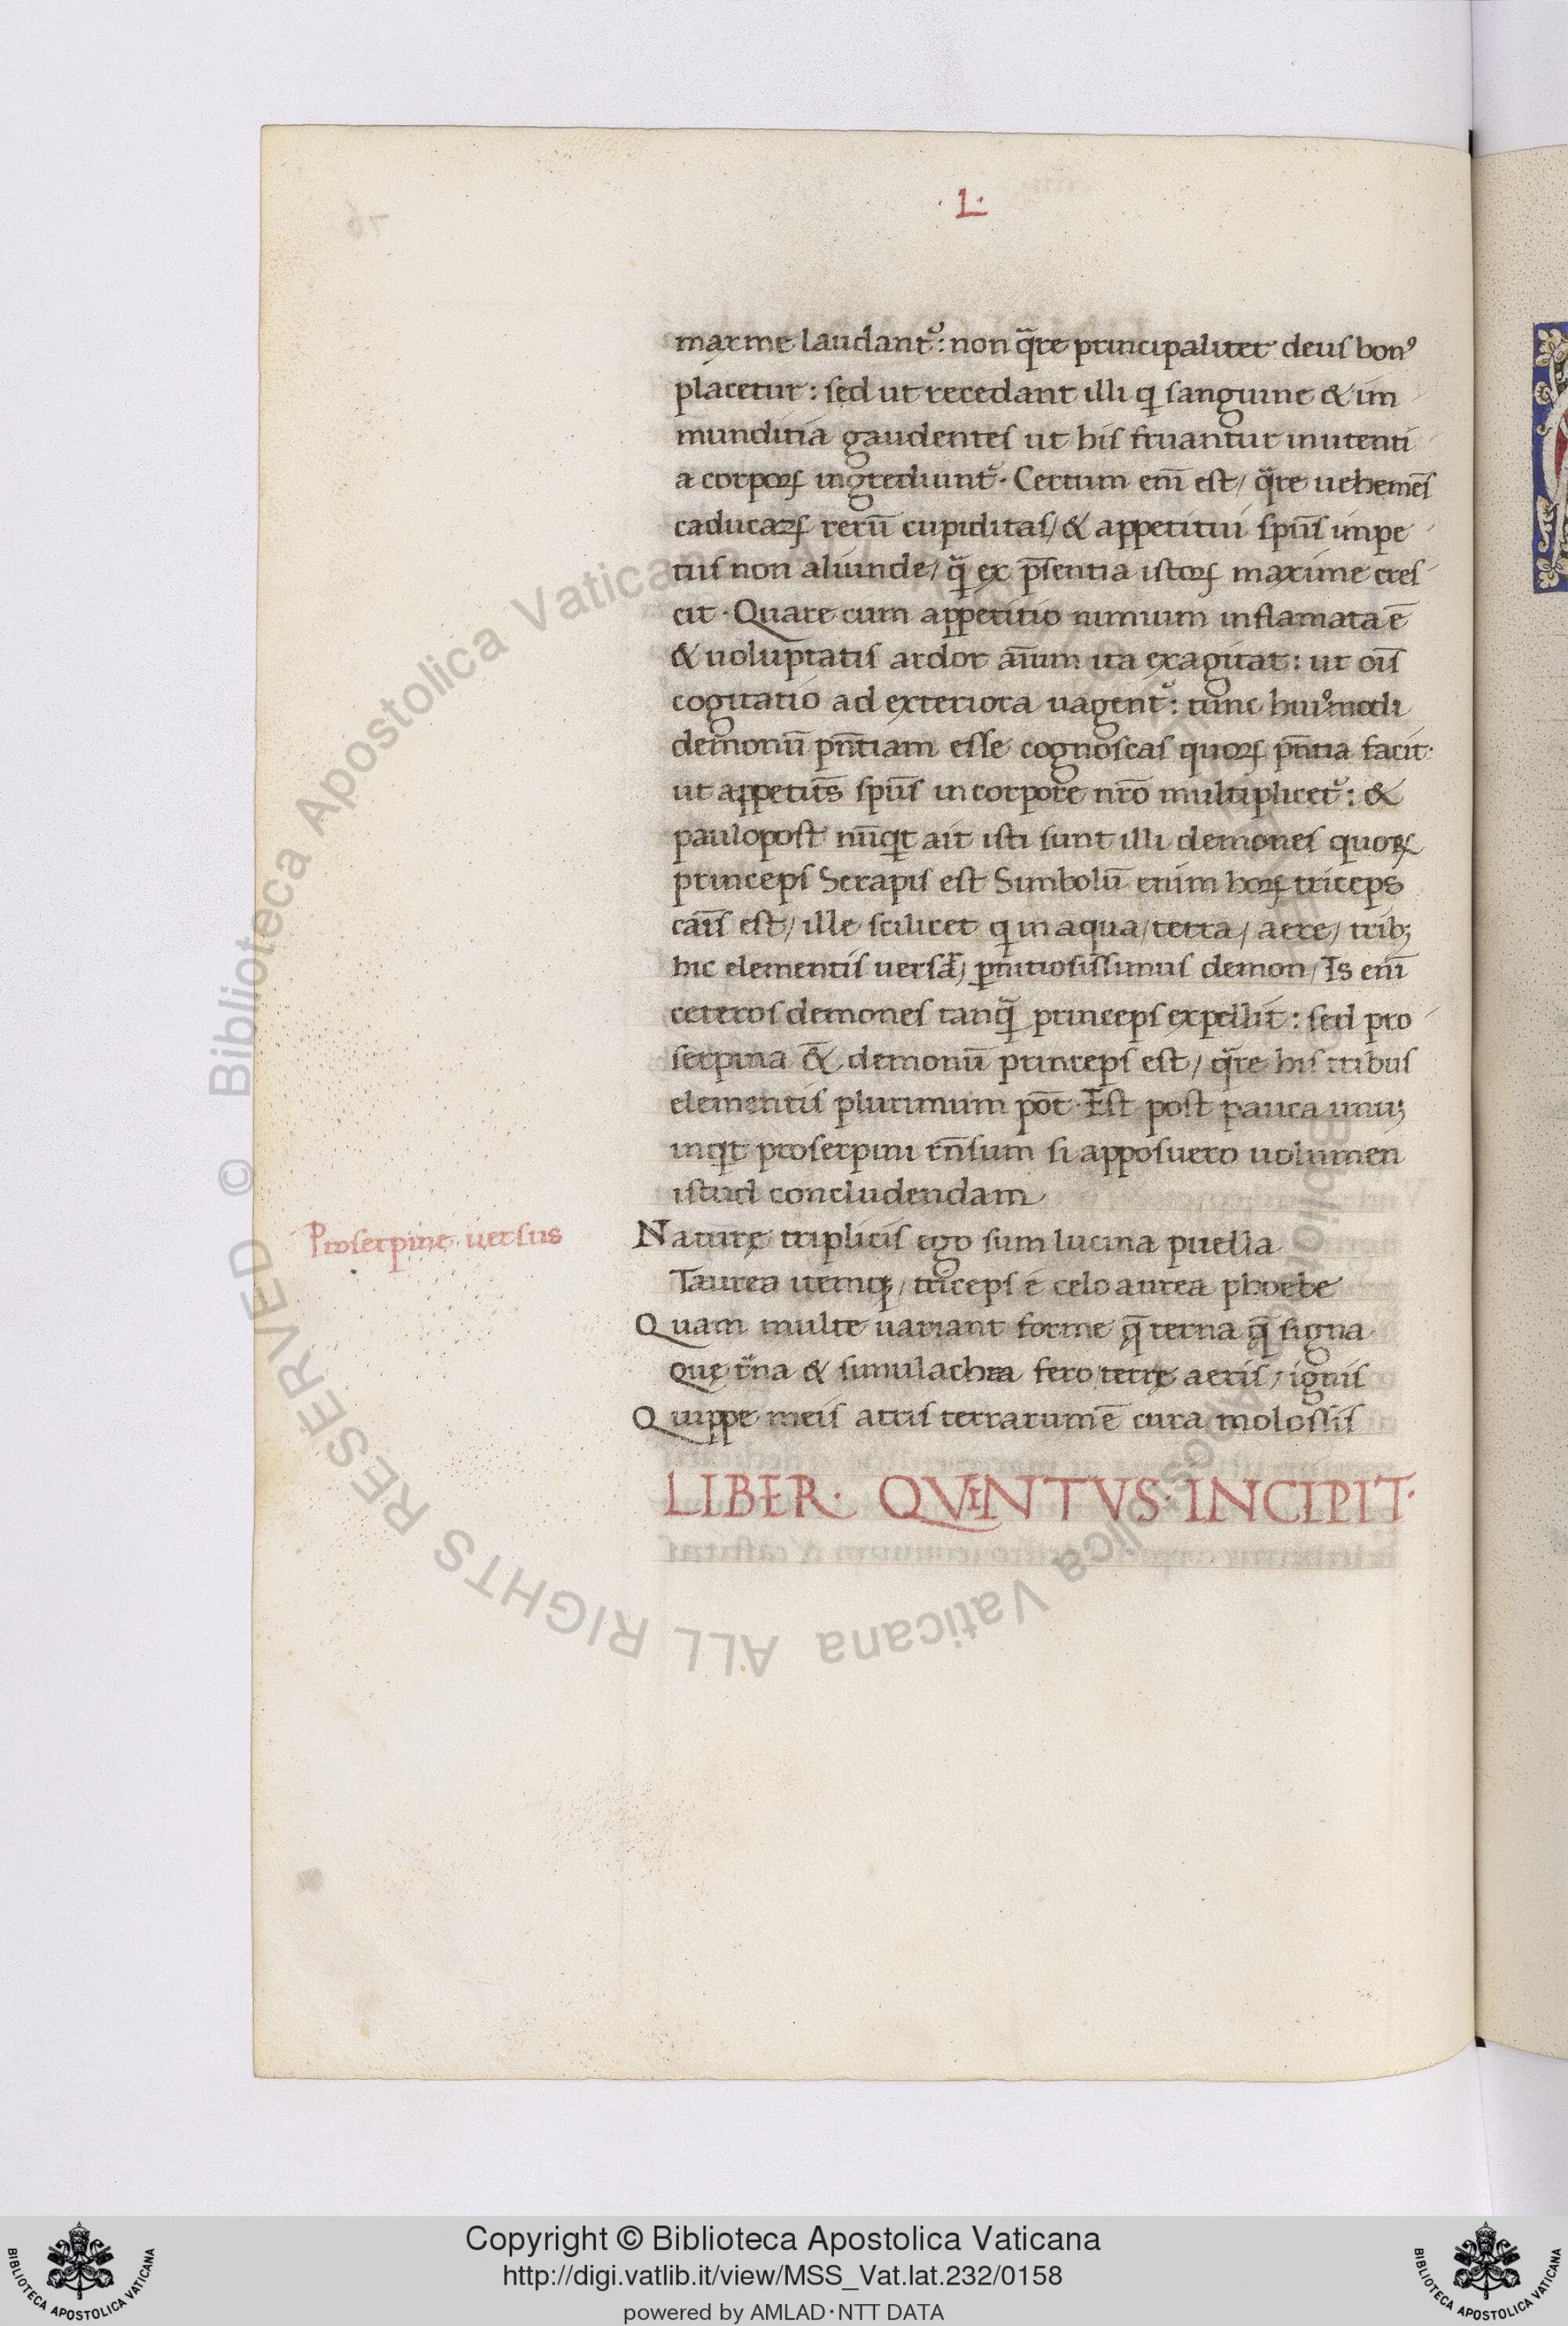 ·L·
maxime laudantᷣ: non q̄re principaliter deus bonꝰ
placetur: sed ut recedant illi q sanguine & im
munditia gaudentes ut his fruantur inutenti
a corpoꝝ ingrediuntᷣ. Certum eni̅ est/ q̄re uehemēs
caducaꝝ rerū cupiditas/ & appetitiui spūs impe
tus non aliunde/ q̄ ex p̄sentia istoꝝ maxime cres
cit. Quare cum appetitio nimium inflamata ē
& uoluptatis ardor aīum ita exagitat: ut oīs
cogitatio ad exteriora uagentᷣ: tunc huiꝰmodi
demonū pn̄tiam esse cognoscas quoꝝ pn̄tia facit.
ut appetit̄s spūs in corpore nr̄o multiplicetᷣ: &
paulopost nūqt ait isti sunt illi demones quoꝝ
princeps Serapis est Simbolū enim hoꝝ triceps
cāis est/ ille scilicet q in aqua/ terra/ aere/ trib;
hic elementis uersat̄; pn̄itiosissimus demon/ Is eni̅
ceteros demones tanq̄ princeps expellit: sed pro
serpina &̄ demonū princeps est/ q̄re his tribus
elementis plurimum pōt. Est post pauca unu;
inqt proserpini rn̄sum si apposuero uolumen
istud concludendam
Proserpine uersus
Naturę triplicis ego sum lucina puella
Taurea itemqꝫ/ triceps é celo aurea phoebe
Quam multe uariant forme q̄ terna q̄ signa
Quę tᷣna & simulachra fero terrę aeris/ ignis
Quippe meis atris terrarum ē cura molossis
LIBER · QVINTVS · INCIPIT·
© Biblioteca Apostolica Vaticana ALL RIGHTS RESERVED
Copyright © Biblioteca Apostolica Vaticana
http://digi.vatlib.it/view/MSS_Vat.lat.232/0158
powered by AMLAD·NTT DATA
BIBLIOTECA APOSTOLICA VATICANA
BIBLIOTECA APOSTOLICA VATICANA